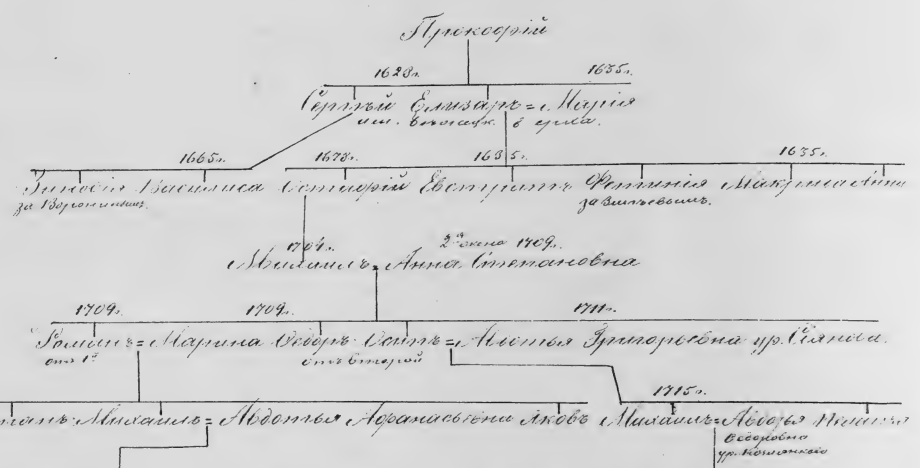 Прокофій
1623г. 1635г.
Сергѣй Елизаръ = Марія
им. в
1665г. 1678г. 1685г. 1635г.
Василиса Остафій Евстратъ Фетинія Макрина Анна
за Воронинымъ. за
1704г. 2ая жена 1709г.
Михаилъ = Анна Степановна
1709г. 1709г. 1711г.
Романъ = Марина Ѳедоръ Осипъ = Григорьевна ур.
отъ 1й отъ второй
1715г.
Михаилъ = Авдотья Афанасьевна Яковъ Михаилъ = Авдотья
Ѳедоровна
ур.